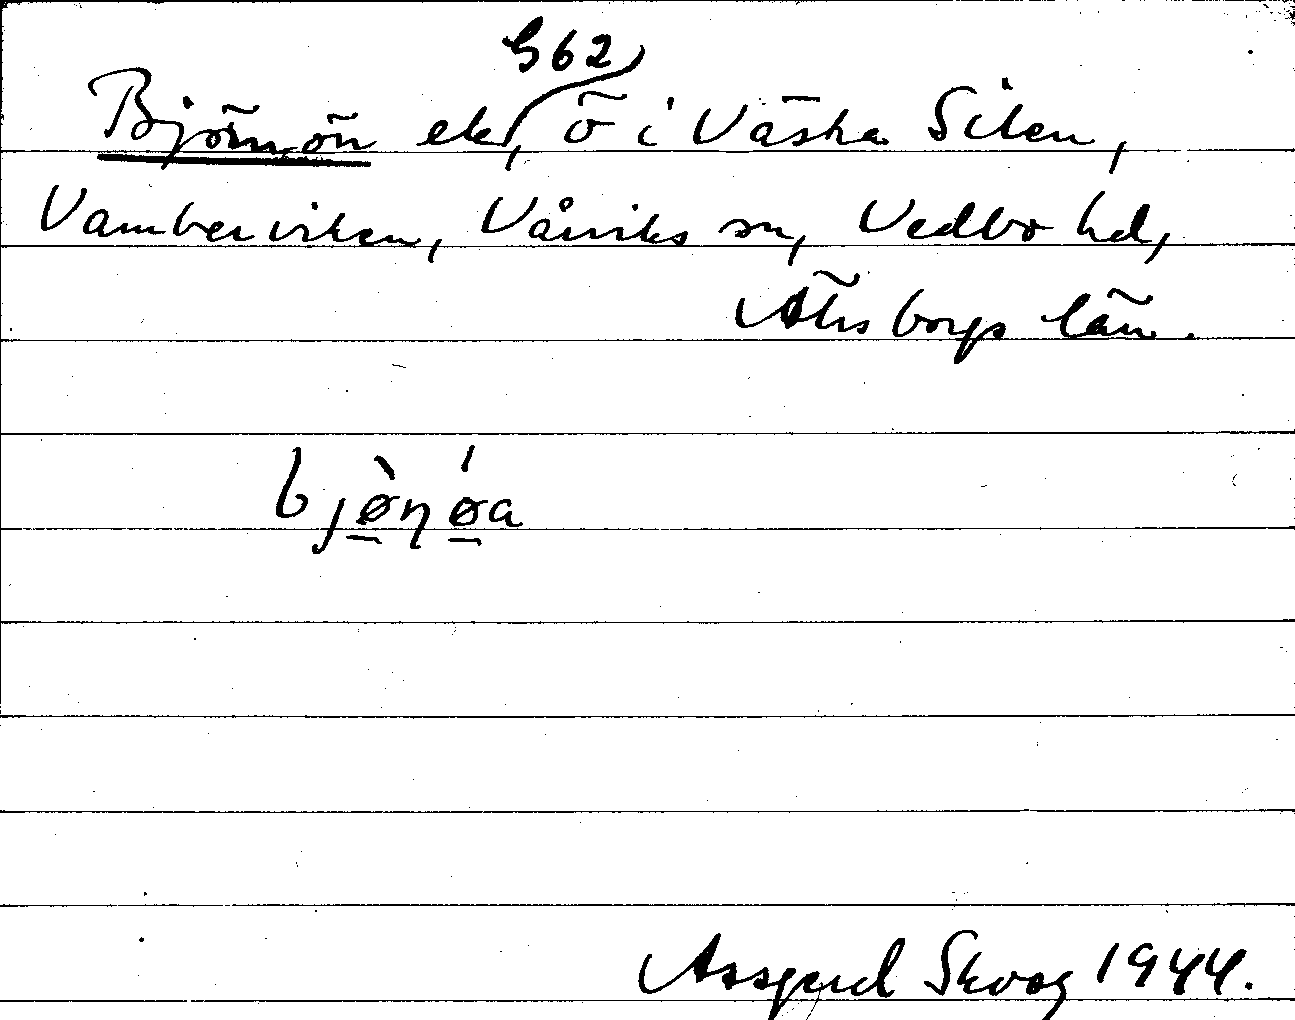 G62
Björnön ek, ö i Västra Silen,
Vamberviken, Vårviks sn, Vedbo hd,
Älvsborgs län.
bjø̲̀nǿ̲a
Assgerd Skoog 1944.